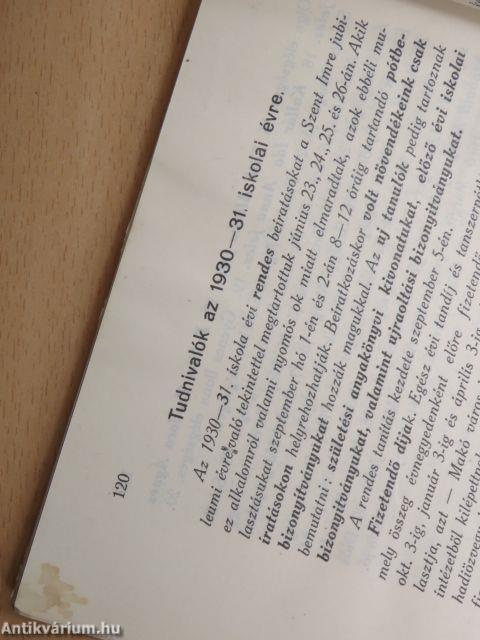 120
Tudnivalók az 1930—31. iskolai évre.
Az 1930—31. iskola évi rendes beiratásokat a Szent Imre jubi-
leumi évre való tekintettel megtartottuk június 23., 24., 25. és 26-án. Akik
ez alkalomról valami nyomós ok miatt elmaradtak, azok ebbéli mu-
lasztásukat szeptember hó 1-én és 2-án 8—12 óráig tartandó pótbe-
iratásokon helyrehozhatják. Beiratkozáskor volt növendékeink csak
bizonyitványukat hozzák magukkal. Az uj tanulók pedig tartoznak
bemutatni: születési anyakönyvi kivonatukat, előző évi iskolai
bizonyitványukat, valamint ujraoltási bizonyitványukat.
A rendes tanitás kezdete szeptember 5-én.
Fizetendő dijak. Egész évi tandij és tanszermi
mely összeg évnegyedenként előre fizetendő
okt. 3.-ig, január 3.-ig és április 3.-ig
lasztja, azt — Makó város
intézetből kilépettnek
hadiözvegy
Antikvárium.hu